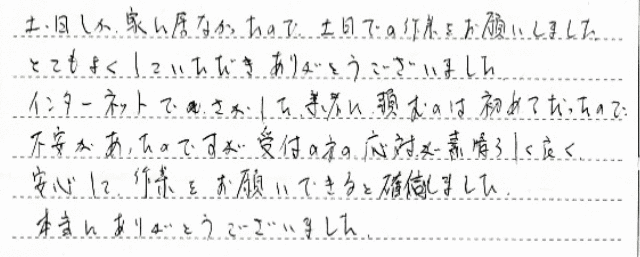 土・日しか、家に居なかったので、土日での作業をお願いしました
とてもよくしていただきありがとうございました
インターネットでさがした業者に頼むのは初めてだったので
不安があったのですが受付の方の応対が素晴らしく良く
安心して、作業をお願いできると確信しました。
本当にありがとうございました。